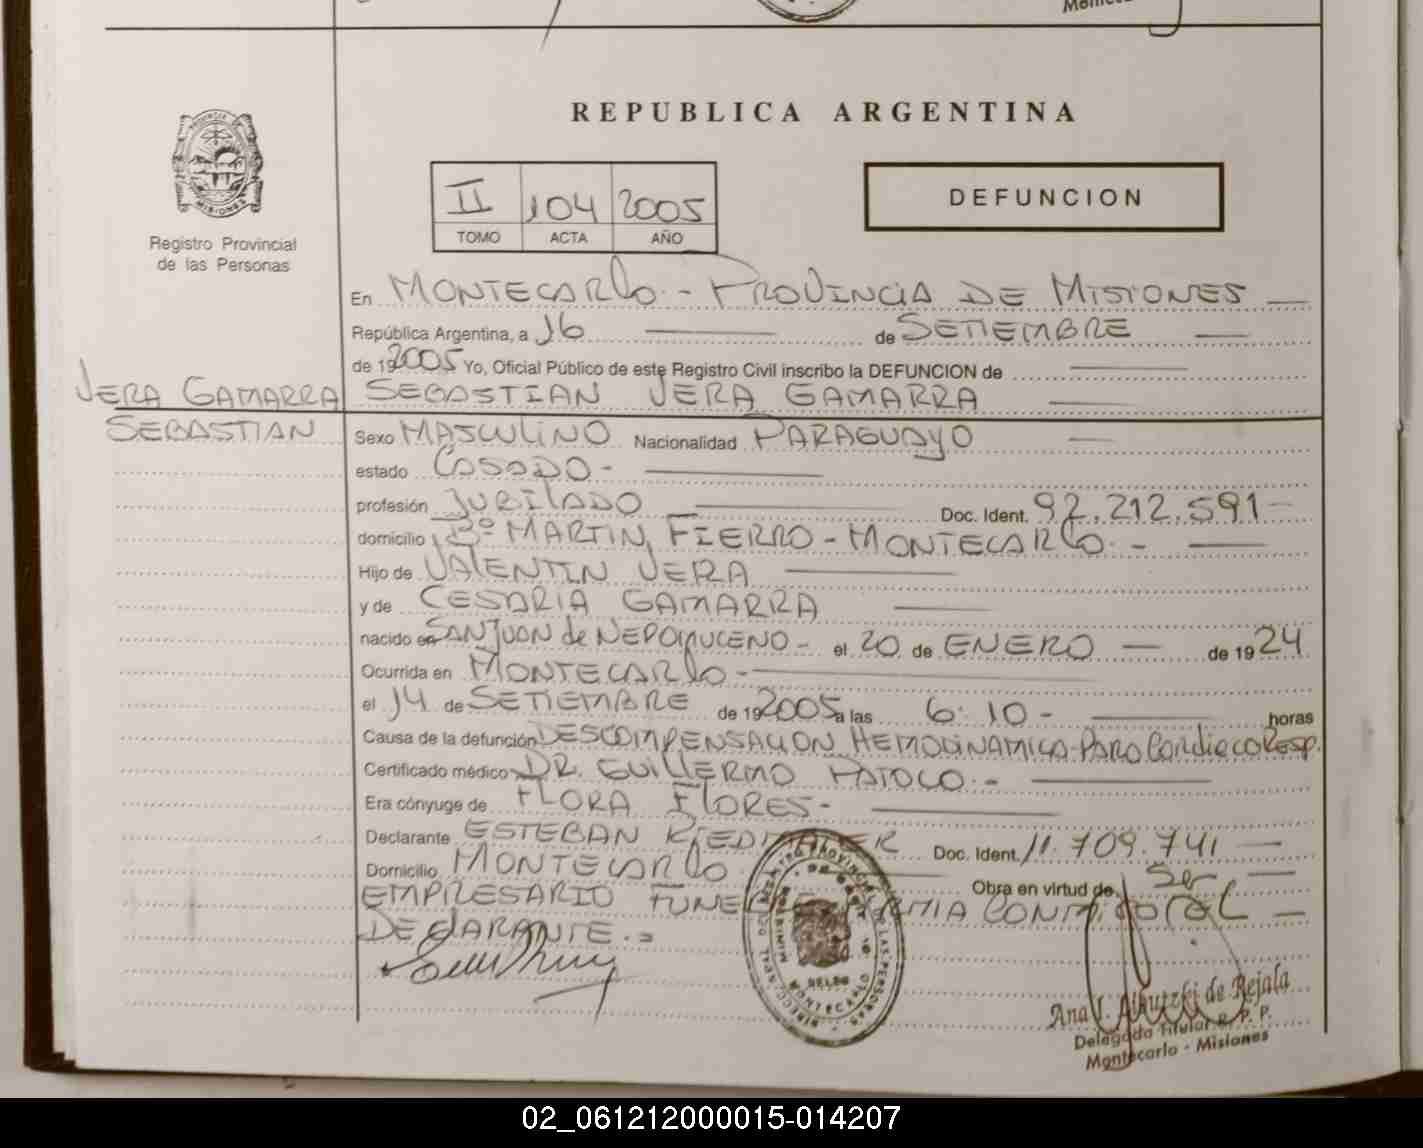 REPUBLICA ARGENTINA
II 104 2005
TOMO ACTA AÑO
DEFUNCION
MISIONES
Registro Provincial
de las Personas
En MONTECARLO - PROVINCIA DE MISIONES
República Argentina, a 16 de SETIEMBRE
de 19 2005 Yo, Oficial Público de este Registro Civil inscribo la DEFUNCION de
VERA GAMARRA
SEBASTIAN
SEBASTIAN VERA GAMARRA
Sexo MASCULINO Nacionalidad PARAGUAYO
estado CASADO -
profesión JUBILADO Doc. Ident. 92.212.591 -
domicilio Bº MARTIN FIERRO - MONTECARLO. -
Hijo de VALENTIN VERA
y de CESARIA GAMARRA
nacido en SAN JUAN de NEPOMUCENO - el 20 de ENERO de 19 24
Ocurrida en MONTECARLO -
el 14 de SETIEMBRE de 19 2005 a las 6:10 - horas
Causa de la defunción DESCOMPENSACION HEMODINAMICA - PARO CardiacoResp.
Certificado médico DR. GUILLERMO PATOCO. -
Era cónyuge de FLORA FLORES -
Declarante ESTEBAN Doc. Ident. 11.709.741
Domicilio MONTECARLO Obra en virtud de Ser
EMPRESARIO
DECLARANTE. =
MONTECARLO
Ana de Rejala
Delegada Titular R. P. P.
Montecarlo - Misiones
02_061212000015-014207